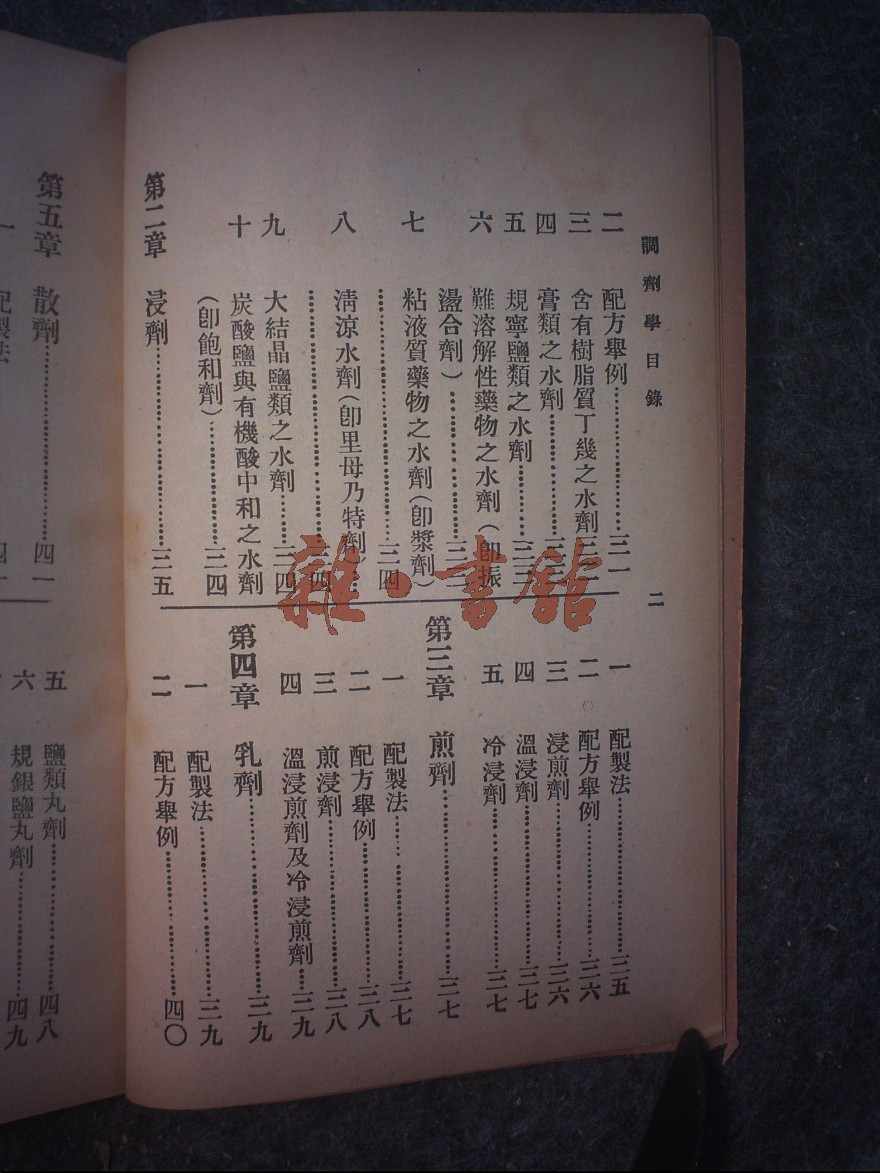 調劑學目錄
二
二 配方舉例……三一
三 含有樹脂質丁幾之水劑
四 膏類之水劑……
五 規寧鹽類之水劑……三三
六 難溶解性藥物之水劑(卽振
盪合劑)……三三
七 粘液質藥物之水劑(卽漿劑)
……三四
八 淸涼水劑(卽里母乃特劑)…
……三四
九 大結晶鹽類之水劑……三四
十 炭酸鹽與有機酸中和之水劑
(卽飽和劑)……三四
第二章 浸劑……三五
一 配製法……三五
二 配方舉例……三六
三 浸煎劑……三六
四 溫浸劑……三七
五 冷浸劑……三七
第三章 煎劑……三七
一 配製法……三七
二 配方舉例……三八
三 煎浸劑……三八
四 溫浸煎劑及冷浸煎劑……三九
第四章 乳劑……三九
一 配製法……三九
二 配方舉例……四〇
第五章 散劑……四一
一 配製法
五 鹽類丸劑……四八
六 規銀鹽丸劑……四九
雜·書館